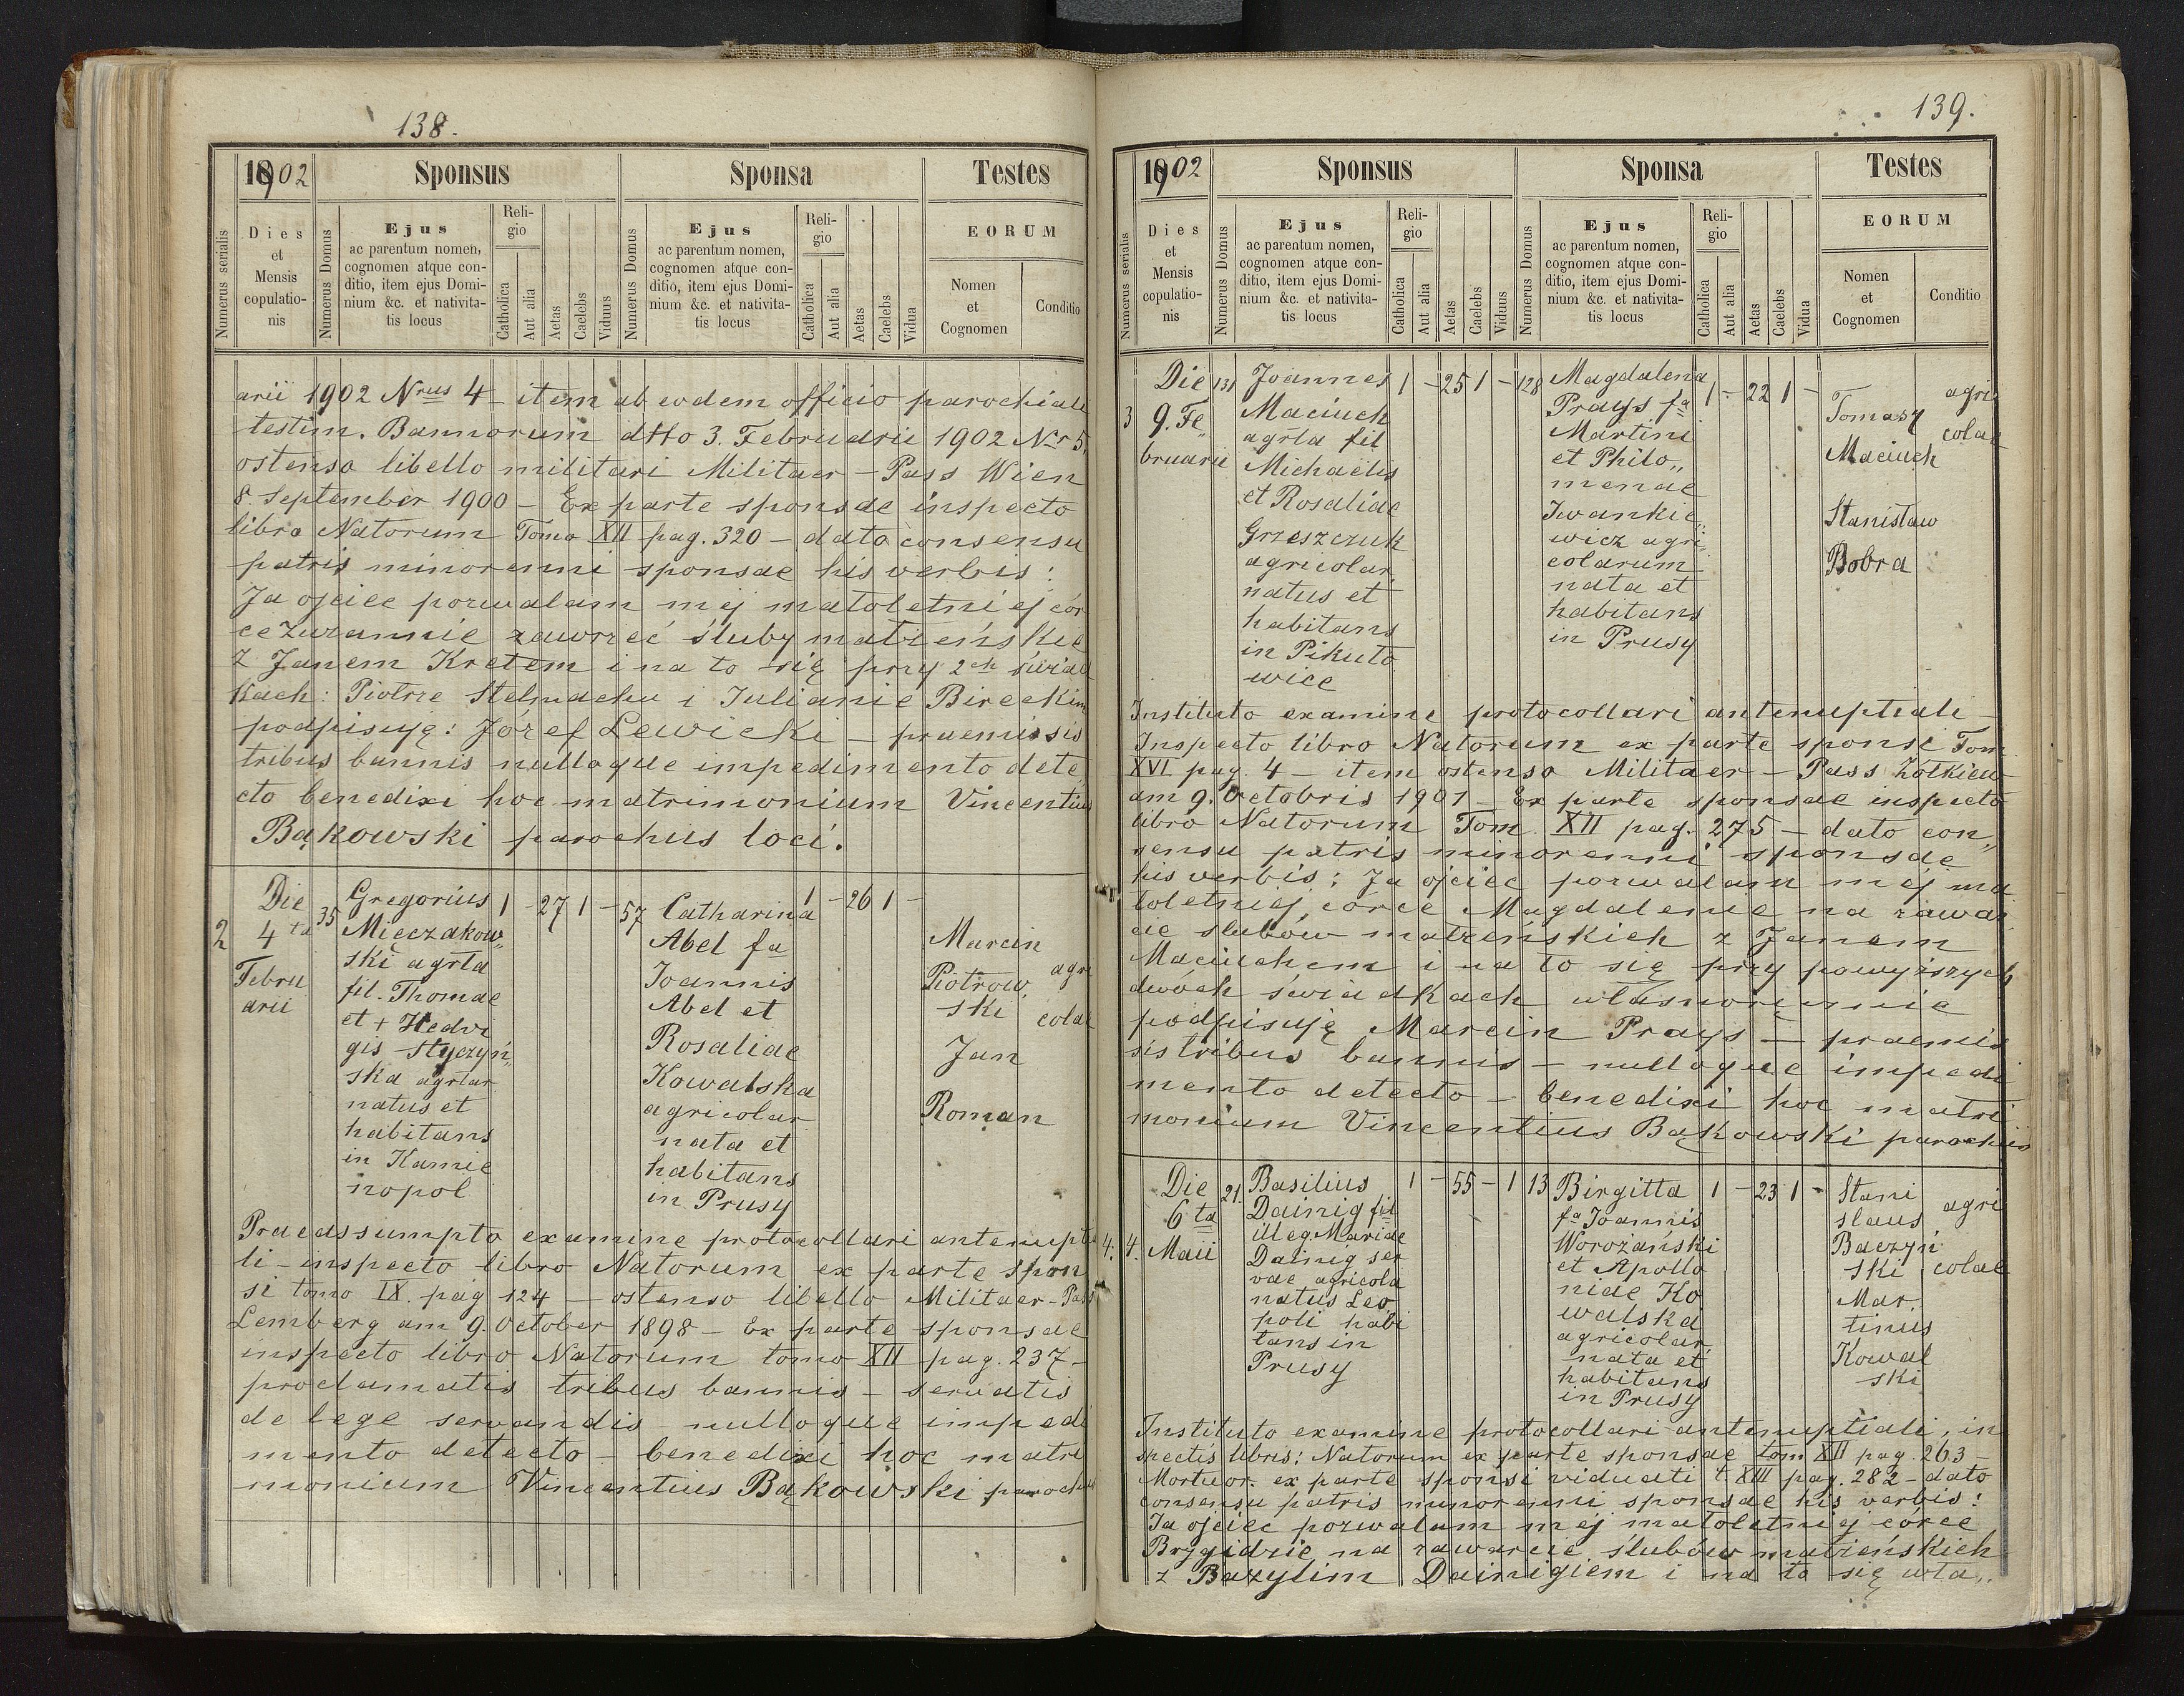 138.
1902
Sponsus
Sponsa
Testes
Numerus serialis
Dies
et
Mensis
copulatio-
nis
Numerus Domus
Ejus
ac parentum nomen,
cognomen atque con-
ditio, item ejus Domi-
nium &c. et nativita-
tis locus
Reli-
gio
Catholica
Aut alia
Aetas
Caelebs
Viduus
Numerus Domus
Ejus
ac parentum nomen,
cognomen atque con-
ditio, item ejus Domi-
nium &c. et nativita-
tis locus
Reli-
gio
Catholica
Aut alia
Aetas
Caelebs
Vidua
EORUM
Nomen
et
Cognomen
Conditio
arii 1902 Nrus 4 - item ab eodem officio parochiali
testim. Bannorum dtto 3. Februarii 1902 Nr 5.
ostenso libello militari Militaer - Pass Wien
8 September 1900 - Ex parte sponsae inspecto
libro Natorum Tomo XII pag. 320 - dato consensu
patris minorenni sponsae his verbis:
Ja ojciec pozwalam mej małoletniej cór
ce Zuzannie zawrzeć śluby małżeńskie
z Janem Kretem i na to się przy 2ch świad
kach: Piotrze Stelmachu i Julianie Bireckim
podpisuję: Józef Lewicki - praemissis
tribus bannis nulloque impedimento dete
cto benedixi hoc matrimonium Vincentius
Bąkowski parochus loci.
2
Die
4ta
Febru
arii
35
Gregorius
Mięczakow„
ski agrla
fil. Thomae
et + Hedvi
gis Styczyń„
ska agrlar
natus et
habitans
in Kamie
nopol
1 - 27 1 -
57
Catharina
Abel fa
Joannis
Abel et
Rosaliae
Kowalska
agricolar
nata et
habitans
in Prusy
1 - 26 1 -
Marcin
Piotrow
ski
Jan
Roman
agri
colae
Praeassumpto examine protocollari antenuptia
li - inspecto libro Natorum ex parte spon
si tomo IX. pag 124 - ostenso libello Militaer - Pass
Lemberg am 9. October 1898 - Ex parte sponsae
inspecto libro Natorum tomo XII pag. 237 -
proclamatis tribus bannis - servatis
de lege servandis - nulloque impedi
mento detecto - benedixi hoc matri
monium Vincentius Bąkowski parochus
139.
1902
Sponsus
Sponsa
Testes
Numerus serialis
Dies
et
Mensis
copulatio-
nis
Numerus Domus
Ejus
ac parentum nomen,
cognomen atque con-
ditio, item ejus Domi-
nium &c. et nativita-
tis locus
Reli-
gio
Catholica
Aut alia
Aetas
Caelebs
Viduus
Numerus Domus
Ejus
ac parentum nomen,
cognomen atque con-
ditio, item ejus Domi-
nium &c. et nativita-
tis locus
Reli-
gio
Catholica
Aut alia
Aetas
Caelebs
Vidua
EORUM
Nomen
et
Cognomen
Conditio
3
Die
9. Fe„
bruarii
131
Joannes
Maciuch
agrla fil
Michaëlis
et Rosaliae
Grzeszczuk
agricolar.
natus et
habitans
in Pikuło
wice
1 - 25 1 -
128
Magdalena
Prays fa
Martini
et Philo„
menae
Iwankie„
wicz agri
colarum
nata et
habitans
in Prusy
1 - 22 1 -
Tomasz
Maciuch
Stanisław
Bobra
agri
colae
Instituto examine protocollari antenuptiali -
Inspecto libro Natorum ex parte sponsi Tom
XVI pag. 4 - item ostenso Militaer - Pass Żołkiew
am 9. Octobris 1901 - Ex parte sponsae inspecto
libro Natorum Tom XII pag. 275 - dato con„
sensu patris minorenni sponsae
his verbis: Ja ojciec pozwalam mej ma
łoletniej córce Magdalenie na zawar
cie ślubów małżeńskich z Janem
Maciuchem i na to się przy powyższych
dwóch świadkach własnoręcznie
podpisuję Marcin Prays - praemis
sis tribus bannis - nulloque impedi
mento detecto - benedixi hoc matri
monium Vincentius Bąkowski parochus
4. 4.
Die
6ta
Maii
21.
Basilius
Dainig fil
illeg. Mariae
Dainig ser
vae agricola
natus Leo
poli habi
tans in
Prusy
1 - 55 - 1
13
Birgitta
fa Joannis
Worożański
et Apollo
niae Ko
walska
agricolar.
nata et
habitans
in Prusy
1 - 23 1 -
Stani
slaus
Baczyń
ski
Mar.
tinus
Kowal
ski
agri
colae
Instituto examine protocollari antenuptiali, in
spectis libris: Natorum ex parte sponsae tom XII pag. 263 -
Mortuor. ex parte sponsi viduati t. XIII pag. 282 - dato
consensu patris minorenni sponsae his verbis:
Ja ojciec pozwalam mej małoletniej córce
Brygidzie na zawarcie ślubów małżeńskich
z Bazylim Dainigiem i na to się wła„